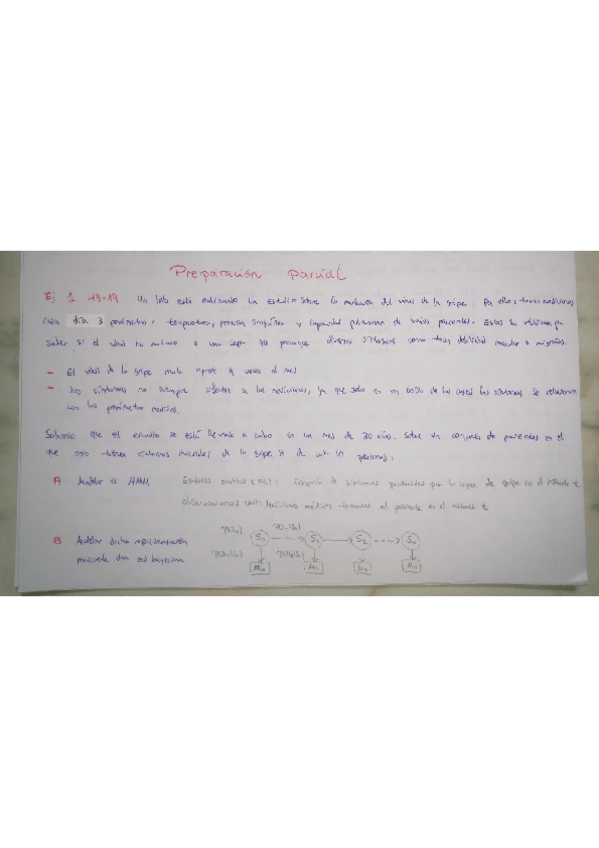 Preparación parcial
Ej 1 18-19 Un lab está realizando un estudio sobre la mutación del virus de la gripe. Para ello, toman mediciones
cada día 3 parámetros: temperatura, presión sanguínea y capacidad pulmonar de varios pacientes. Estos los utilizan para
saber si el virus ha mutado a una cepa que provoque diversos síntomas como tos, debilidad muscular o migrañas.
- El virus de la gripe muta veces al mes
- Los síntomas no siempre a las mediciones, ya que solo en un de los casos los síntomas se relacionan
con los parámetros medidos.
Sabiendo que el estudio se está llevando a cabo en un mes de 30 días, sobre un conjunto de pacientes en el
que solo tienen síntomas musculares de la gripe personas:
A Modelar el HMM Estados ocultos (St): Conjunto de síntomas producidos por la cepa de gripe en el instante t
observaciones (Mt): Mediciones médicas tomadas al paciente en el instante t
B Modelar dicha representación
mediante una red bayesiana
P(S0) P(S1|S0)
S0 S1 S2 Sn
P(M0|S0) P(M1|S1)
M0 M1 M2 Mn